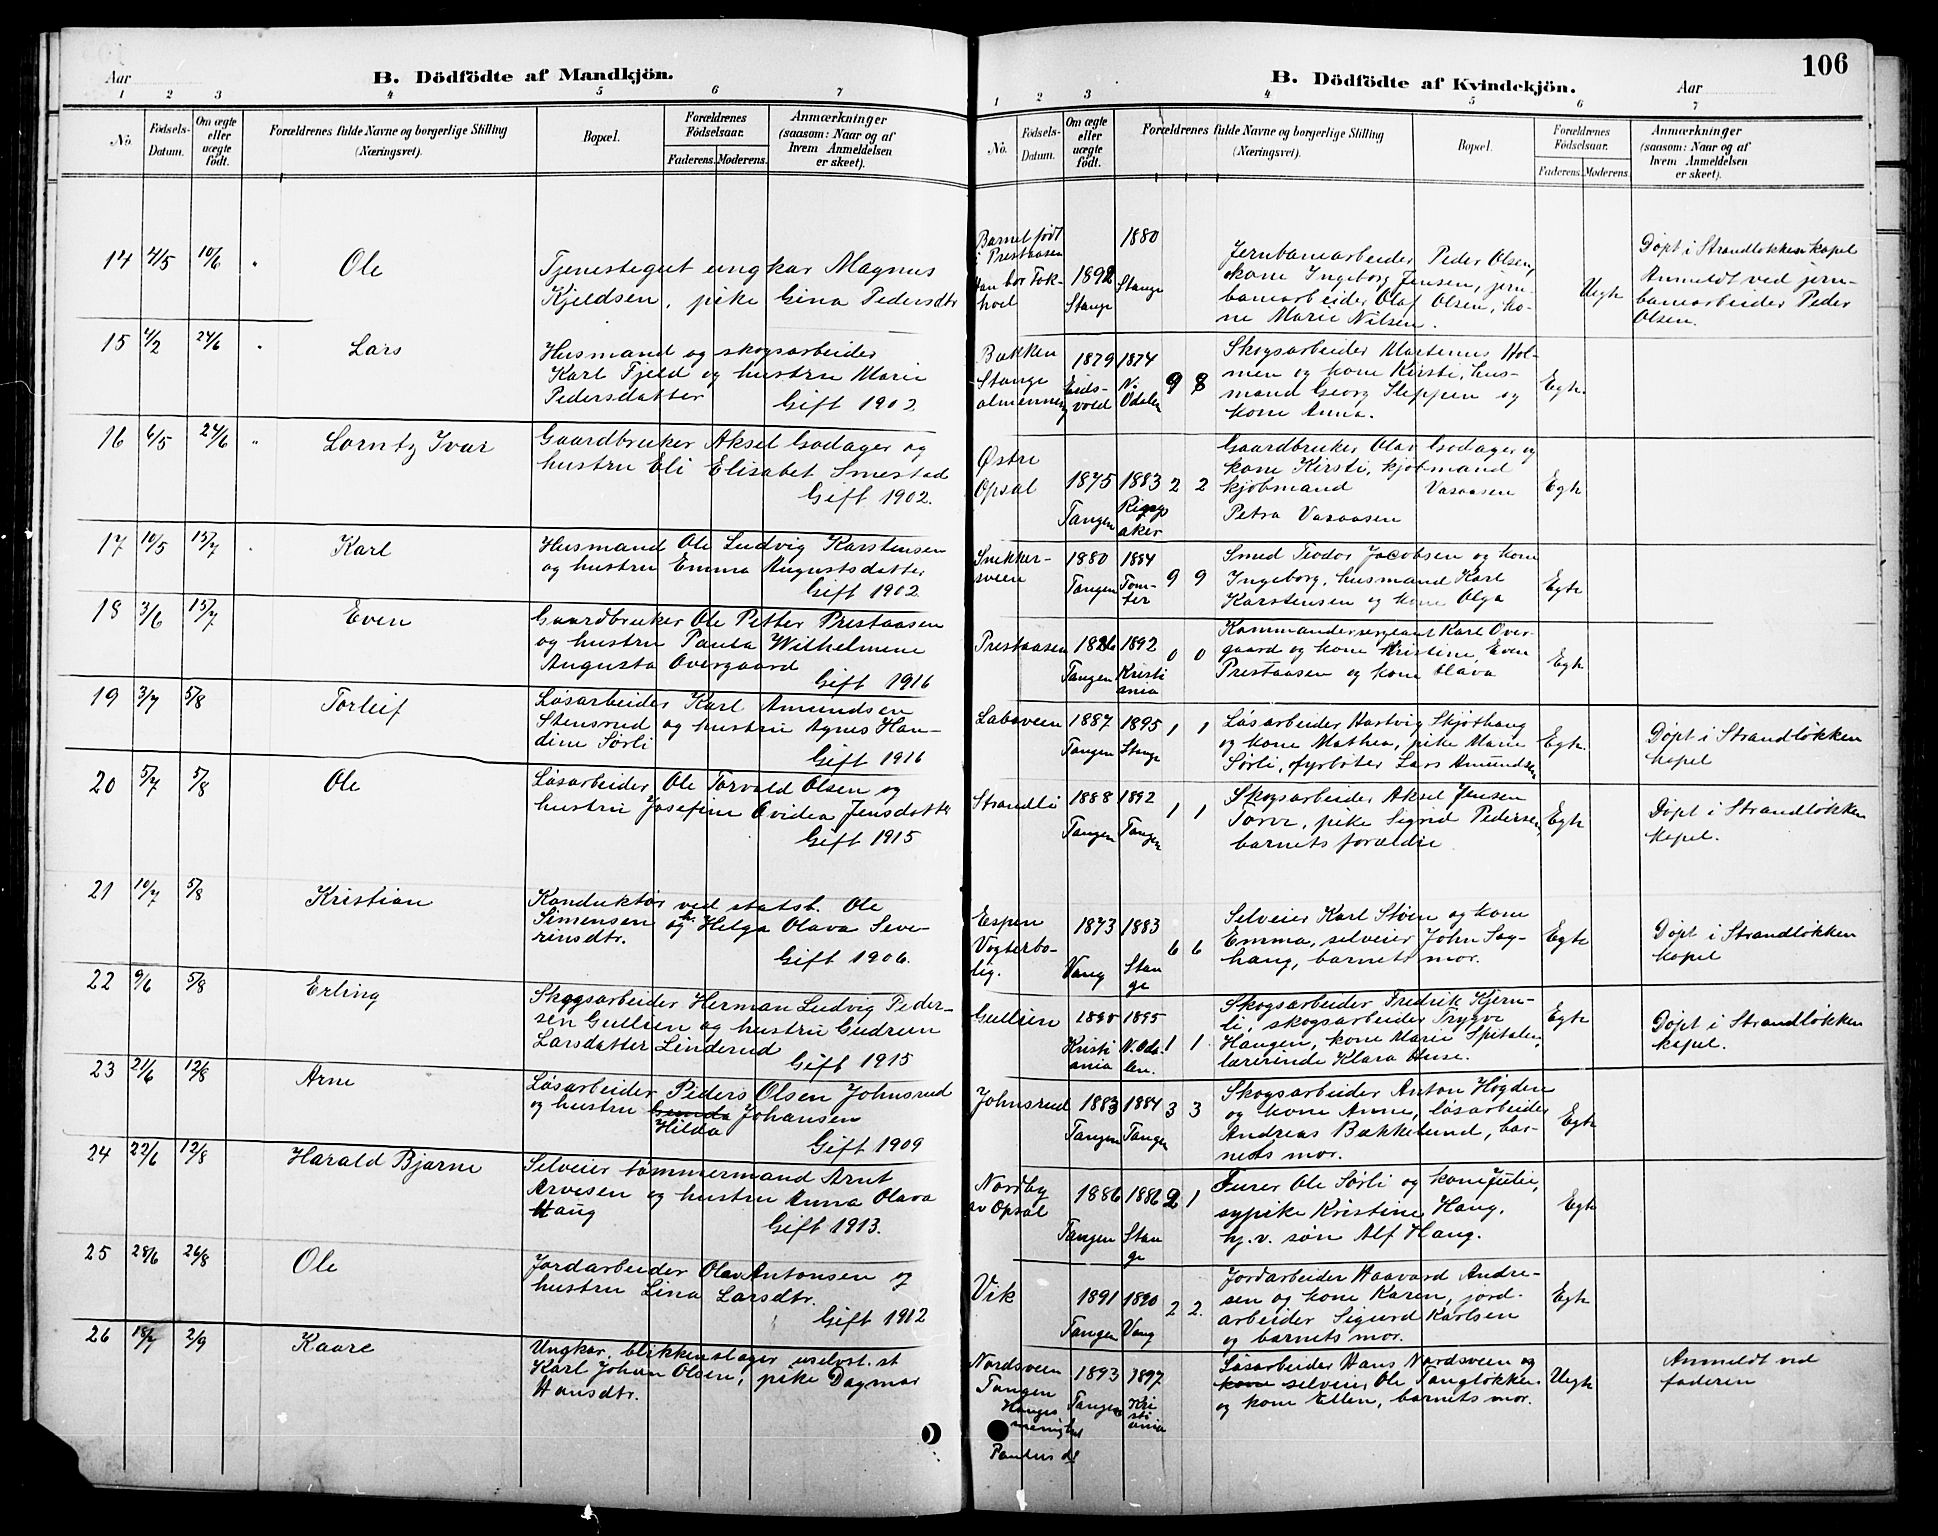 Aar
B. Dödfödte af Mandkjön.
1 2 3 4 5 6 7
No. Födsels-Datum. Om ægte eller uægte födt. Forældrenes fulde Navne og borgerlige Stilling (Næringsvei). Bopæl. Forældrenes Födselsaar. Faderens. Moderens. Anmærkninger (saasom: Naar og af hvem Anmeldelsen er skeet).
14 4/5 10/6 " Ole
Tjenestegut ungkar Magnus
Kjeldsen, pike Gina Pedersdtr
15 4/2 24/6 " Lars
Husmand og skogsarbeider
Karl Fjeld og hustru Marie
Pedersdatter Gift 1902.
16 6/5 24/6 " Lorntz Ivar
Gaardbruker Aksel Godager og
hustru Eli Elisabet Smestad
Gift 1902.
17 10/5 15/7 " Karl
Husmand Ole Ludvig Karstensen
og hustru Emma Augustsdatter
Gift 1902.
18 3/6 15/7 Even
Gaardbruker Ole Petter Prestaasen
og hustru Paula Wilhelmine
Augusta Overgaard
Gift 1916
19 3/7 5/8 Torleif
Løsarbeider Karl Amundsen
Stensrud og hustru Agnes Han-
dine Sørli
Gift 1916
20 5/7 5/8 Ole
Løsarbeider Ole Torvald Olsen og
hustru Josefine Ovidea Jensdatter
Gift 1915
21 10/7 5/8 Kristian
Konduktør ved statsb. Ole
Simensen og h. Helga Olava Seve-
rinsdtr.
Gift 1906.
22 9/6 5/8 Erling
Skogsarbeider Herman Ludvig Peder-
sen Gullien og hustru Gudrun
Larsdatter Linderud
Gift 1915
23 21/6 12/8 Arne
Løsarbeider Peders Olsen Johnsrud
og hustru Gunda Johansen
Hilda
Gift 1909
24 22/6 12/8 Harald Bjarne
Selveier tømmermand Arnt
Arvesen og hustru Anna Olava
Haug
Gift 1913.
25 28/6 26/8 Ole
Jordarbeider Olav Antonsen og
hustru Lina Larsdtr.
Gift 1912
26 18/7 2/9 Kaare
Ungkar, blikkenslager
Karl Johan Olsen, pike Dagmar
Hansdtr.
106
B. Dödfödte af Kvindekjön.
Aar
1 2 3 4 5 6 7
No. Födsels-Datum. Om ægte eller uægte födt. Forældrenes fulde Navne og borgerlige Stilling (Næringsvei). Bopæl. Forældrenes Födselsaar. Faderens. Moderens. Anmærkninger (saasom: Naar og af hvem Anmeldelsen er skeet).
Barnet født
i Prestaasen
Han bor Tok-
hol
1892 Stange
1880 Stange
Jernbanearbeider Peder Olsen,
kone Ingeborg Jensen, jern-
banearbeider Olaf Olsen, ko-
ne Marie Nilsen.
Uegte
Døpt i Strandløkken kapel
Anmeldt ved jern-
banearbeider Peder
Olsen.
Bækken
Stange
almenning
1879 Eidsvold
1874 N. Odalen
9 8
Skogsarbeider Martinus Hol-
men og kone Kirsti, hus-
mand Georg Sleppen og
kone Anna.
Egte.
Østre
Opsal
1875 Tangen
1883
2 2
Gaardbruker Olav Godager og
kone Kirsti, kjøbmand
kjøbmand Vasaasen
Petra Vasaasen
Egte
Snekker-
sveen
1880 Tangen
1884 Tomter
9 9
Smed Teodor Jacobsen og kone
Ingeborg, husmand Karl
Karstensen og kone Olga
Egte
Prestaasen
Tangen
1892 Kristiania
0 0
Kommandersergeant Karl Over-
gaard og kone Kristine, Even
Prestaasen og kone Olava
Egte
Labsveen
1887 Tangen
1895 Stange
1 1
Løsarbeider Hartvig Skjøthaug
og kone Mathea, pike Marie
Sørli, fyrbøter Lars Amundsen
Egte.
Døpt i Strandløkken
kapel
Strandli
1888 Tangen
1892 Tangen
1 1
Skogsarbeider Aksel Jensen
Torve, pike Sigrid Pedersen,
barnets forældre
Egte
Døpt i Strandløkken
kapel.
Espen
Vogterbo-
lig.
1873 Vang
1883 Stange
6 6
Selveier Karl Støen og kone
Emma, selveier John Sag-
hang, barnets mor.
Egte
Døpt i Strandløkken
kapel
Gullien
1890 Kristiania
1895 N. Odalen.
1 1
Skogsarbeider Fredrik Kjern-
li, skogsarbeider Trygve
Haugen, kone Marie Spitalen,
lærerinde Klara Huse.
Egte
Døpt i Strandløkken
kapel.
Johnsrud
1883 Tangen
1884 Tangen
3 3
Skogsarbeider Anton Høgden
og kone Anne, løsarbeider
Andreas Bækkelund, bar-
nets mor.
Egte
Nordby
av Opsal
1886 Tangen
1886 Stange
2 1
Furer Ole Sørli og kone Julie,
sypike Kristine Haug.
hj. v. søn Alf Haug.
Egte
Vik
1891 Tangen
1890 Vang
2 2.
Jordarbeider Haavard Andre-
sen og kone Karen, jord-
arbeider Sigurd Karlsen
og barnets mor.
Egte
Nordsveen
Tangen
1893 Tangen
1897 Kristiania
Løsarbeider Hans Nordsveen og
kone selveier Ole Tangløkken
og kone Ellen, barnets mor.
Uegte
Anmeldt ved
faderen